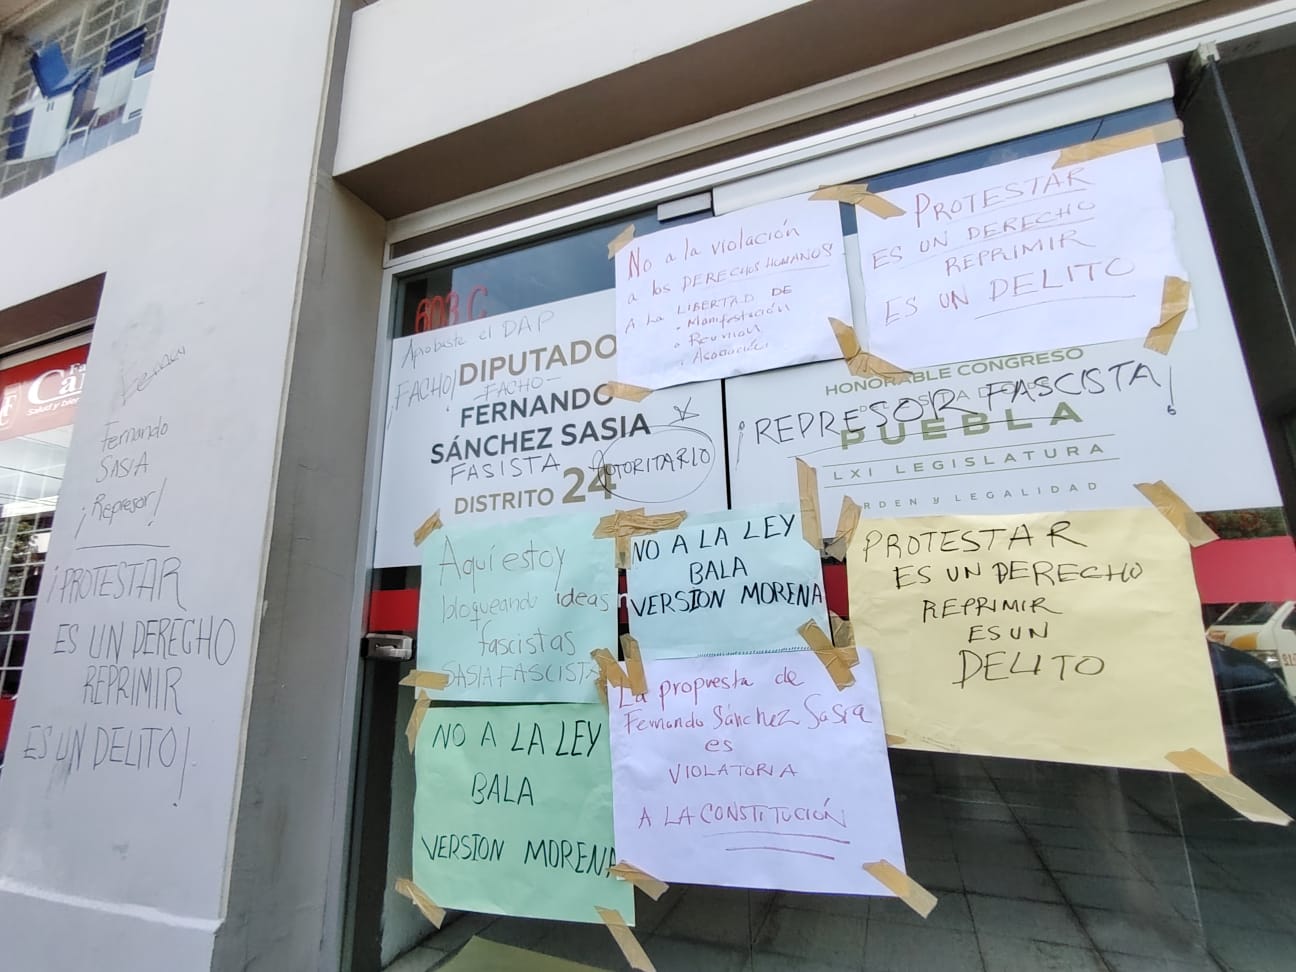 Fernando
SASIA
¡Represor!
¡PROTESTAR
ES UN DERECHO
REPRIMIR
ES UN DELITO!
Salud y bien
603 C
Aprobaste el DAP
¡FACHO!
FACHO
DIPUTADO
FERNANDO
SÁNCHEZ SASIA
FASISTA
AUTORITARIO
DISTRITO 24
No a la violación
a los DERECHOS HUMANOS
A La LIBERTAD DE
• Manifestación
• Reunion
• Asociación
PROTESTAR
ES UN DERECHO
REPRIMIR
ES UN DELITO
HONORABLE CONGRESO
¡REPRESOR FASCISTA!
PUEBLA
LXI LEGISLATURA
RDEN y LEGALIDAD
Aquí estoy
bloqueando ideas
fascistas
SASIA FASCISTA
NO A LA LEY
BALA
VERSION MORENA
PROTESTAR
ES UN DERECHO
REPRIMIR
ES UN
DELITO
NO A LA LEY
BALA
VERSION MORENA
La propuesta de
Fernando Sánchez Sasia
es
VIOLATORIA
A LA CONSTITUCIÓN